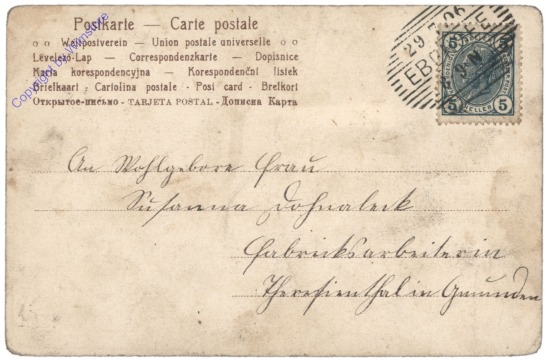 Postkarte — Carte postale
o o Weltpostverein — Union postale universelle o o
Levelező-Lap — Correspondenzkarte — Dopisnice
Karta korespondencyjna — Korespondenční lístek
Briefkaart - Cartolina postale - Post card - Brefkort
Открытое письмо - TARJETA POSTAL - Дописна Карта
29 7 06
EBE
5 5
HELLER
5 5
An Wohlgebore Frau
Susanna Dohnaleck
Fabriksarbeiterin
Theresienthal in Gmunden